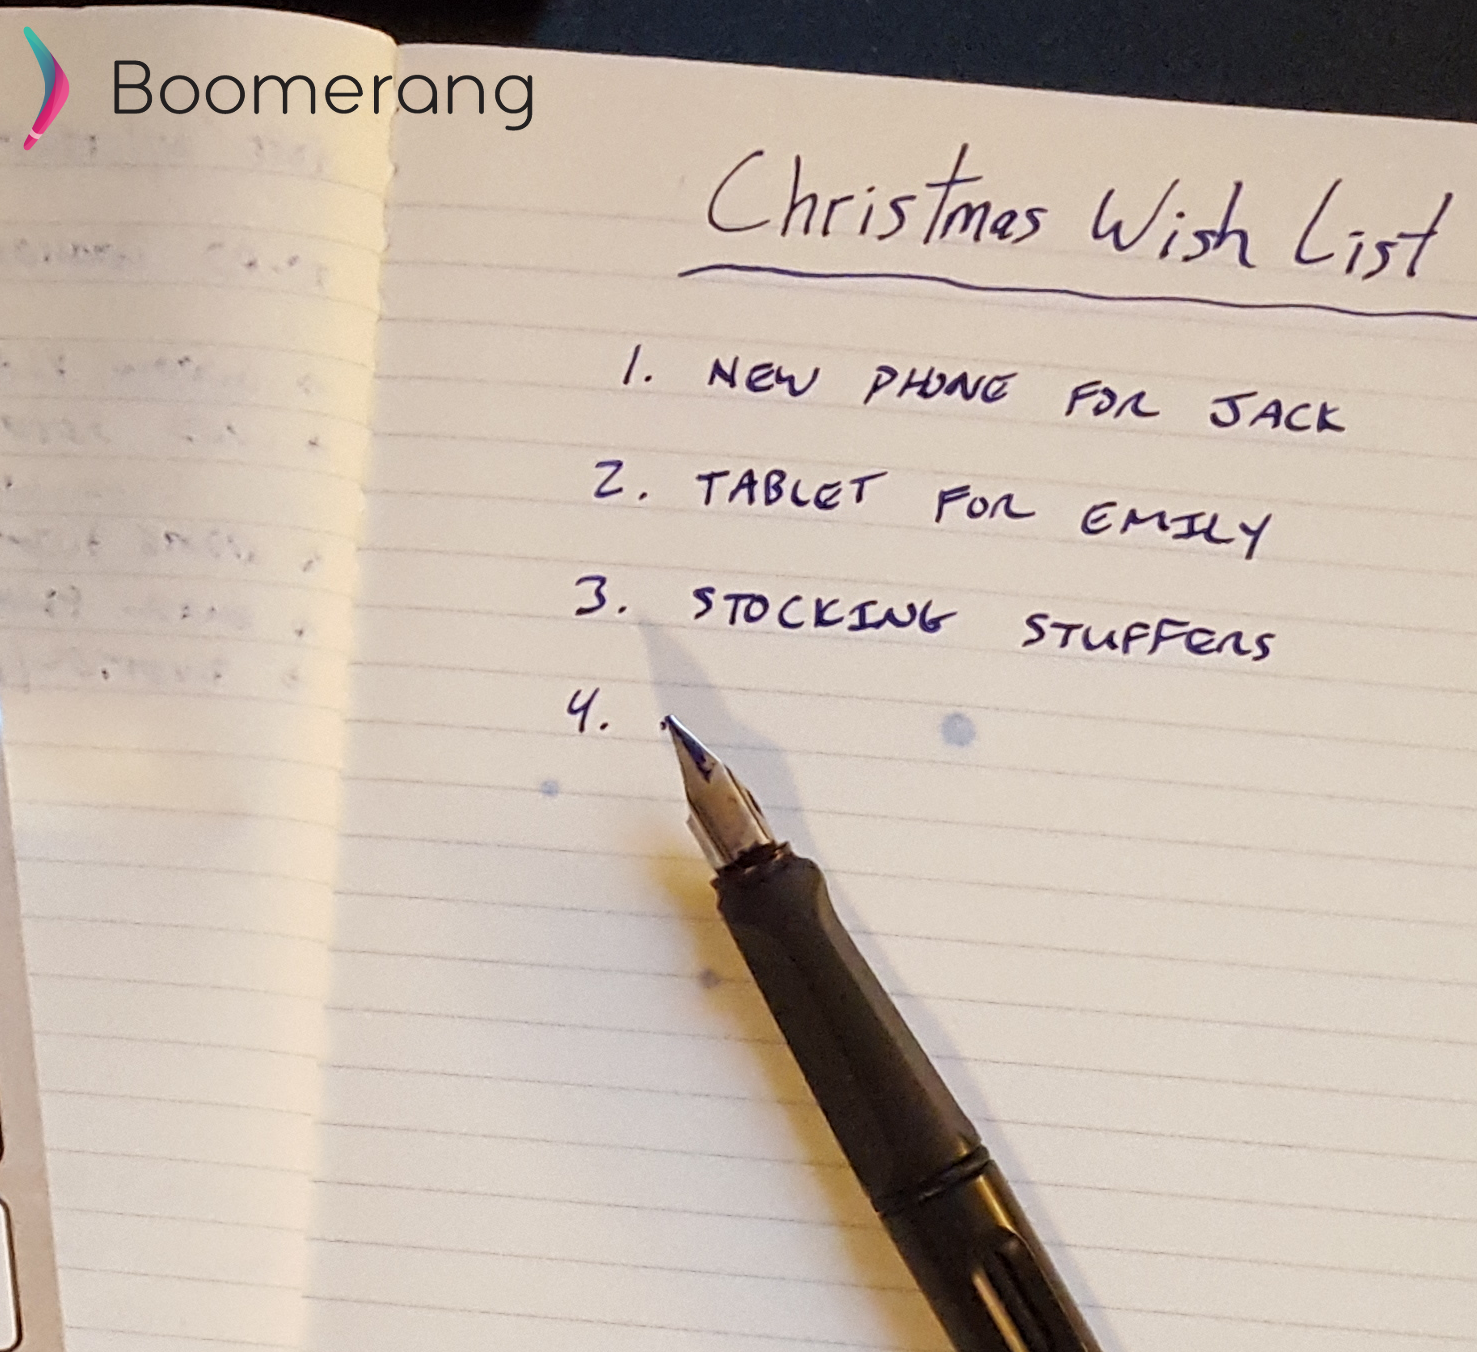 Boomerang
Christmas Wish List
1. NEW PHONE FOR JACK
2. TABLET FOR EMILY
3. STOCKING STUFFERS
4.